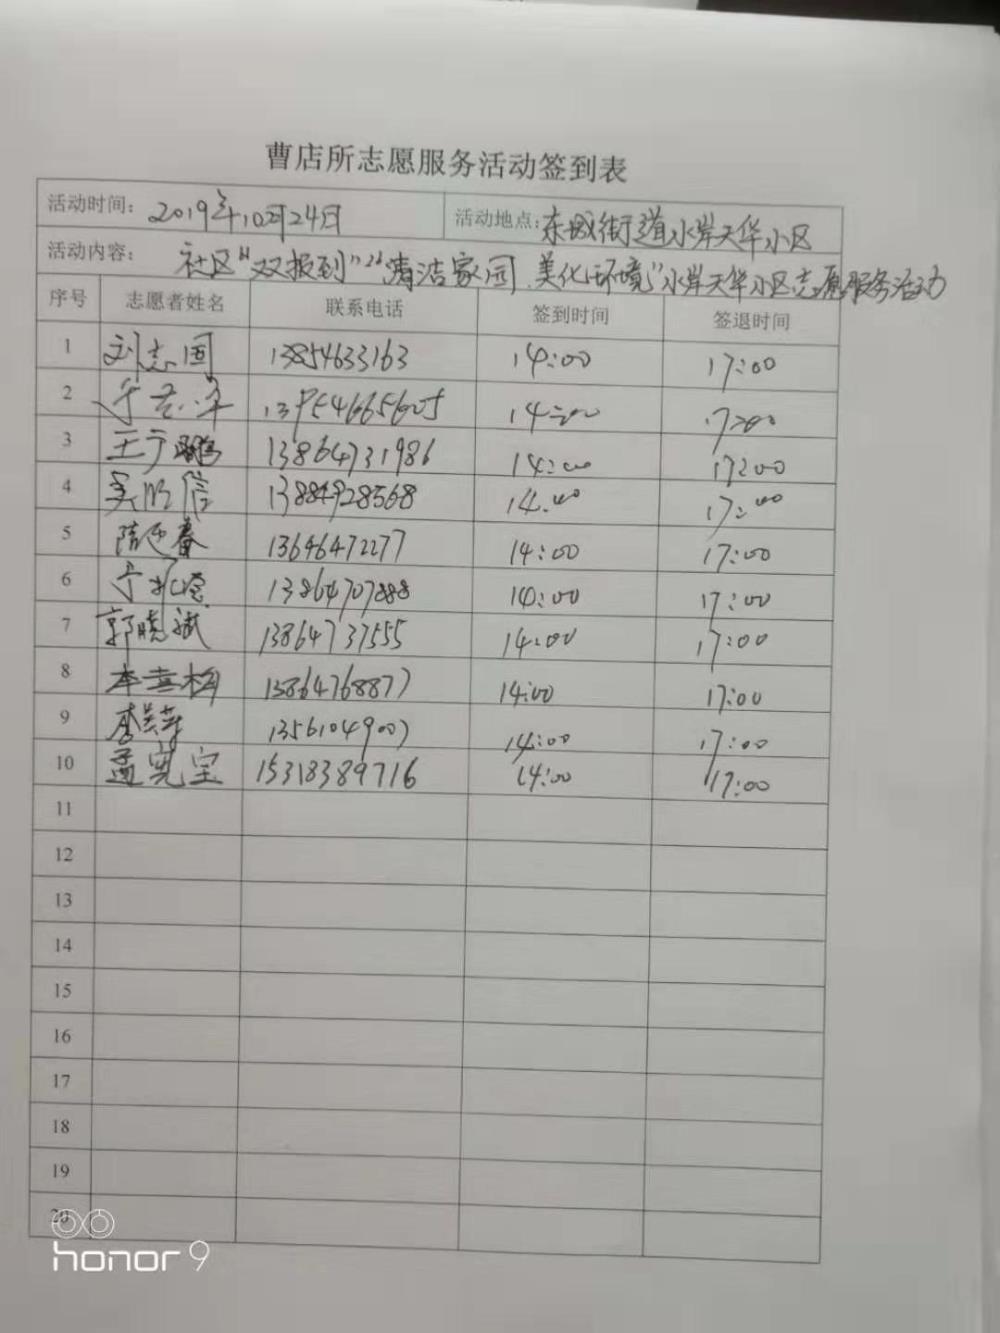 曹店所志愿服务活动签到表
活动时间: 2019年10月24日 活动地点: 东城街道水岸天华小区
活动内容: 社区“双报到”“清洁家园、美化环境”水岸天华小区志愿服务活动
序号 志愿者姓名 联系电话 签到时间 签退时间
1 刘志国 13854633163 14:00 17:00
2 14:00 17:00
3 王 13864731986 14:00 17:00
4 13884928568 14:00 17:00
5 13646472277 14:00 17:00
6 13864707888 14:00 17:00
7 郭晓斌 13864737555 14:00 17:00
8 13864768877 14:00 17:00
9 李 13561049007 14:00 17:00
10 孟宪宝 15318389716 14:00 17:00
11
12
13
14
15
16
17
18
19
20
honor 9